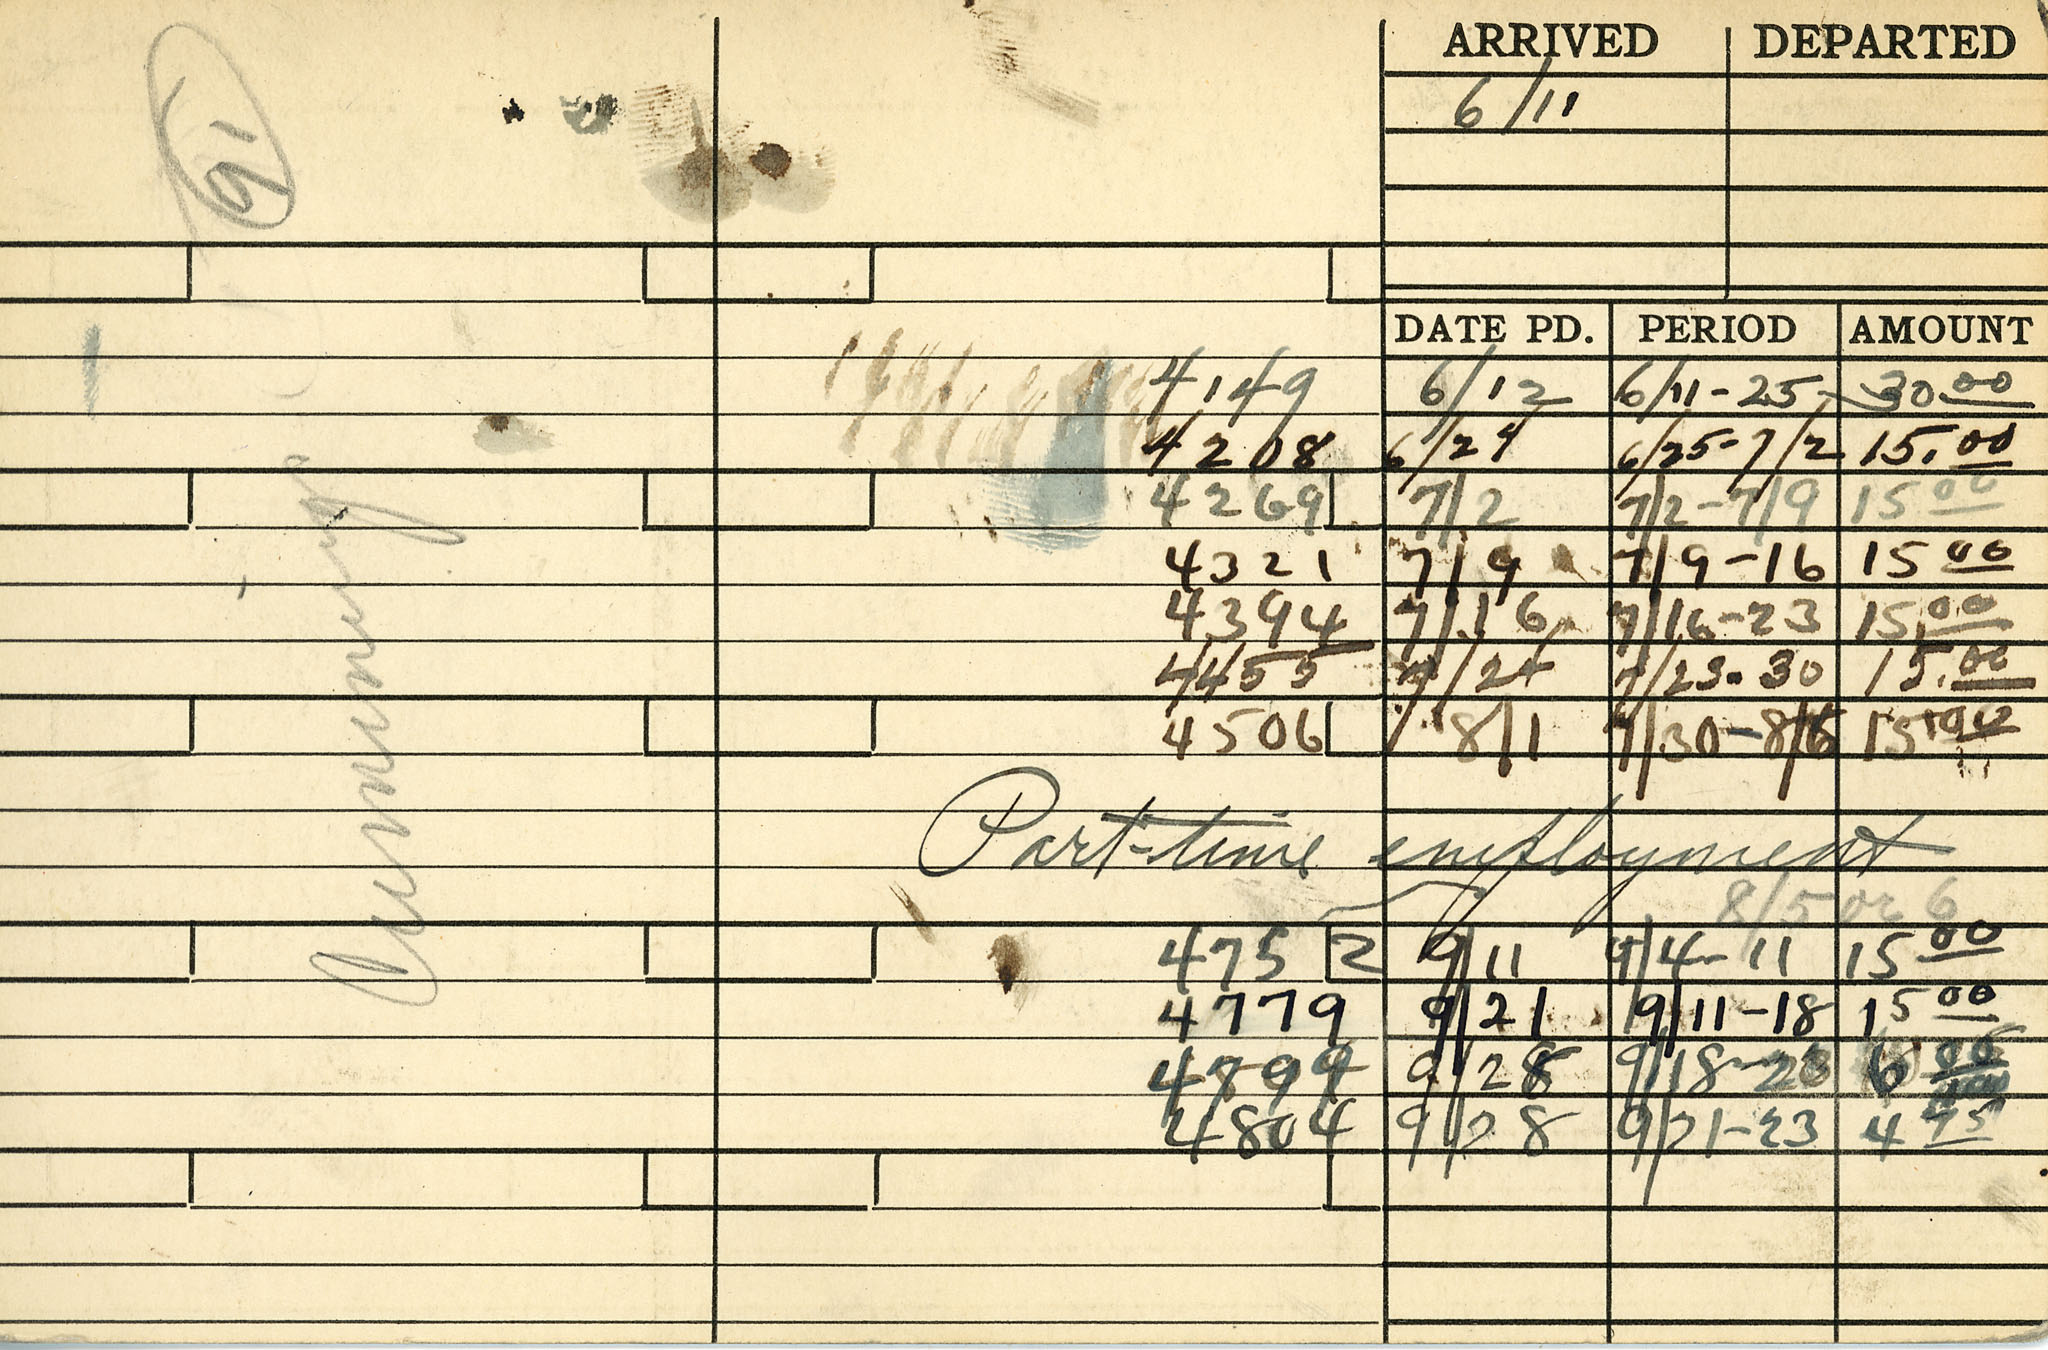 ARRIVED DEPARTED
6/11
DATE PD. PERIOD AMOUNT
4149 6/12 6/11-25 30.00
4208 6/24 6/25-7/2 15.00
4269 7/2 7/2-7/9 15 00
4321 7/9 7/9-16 15 00
4394 7/16 7/16-23 15.00
4455 7/24 7/23-30 15.00
4506 8/1 7/30-8/6 15.00
Part-time employment
8/5 or 6
4752 9/11 9/4-11 15 00
4779 9/21 9/11-18 15 00
4799 9/28 9/18-23 6 00
4804 9/28 9/21-23 4 75
Cummings